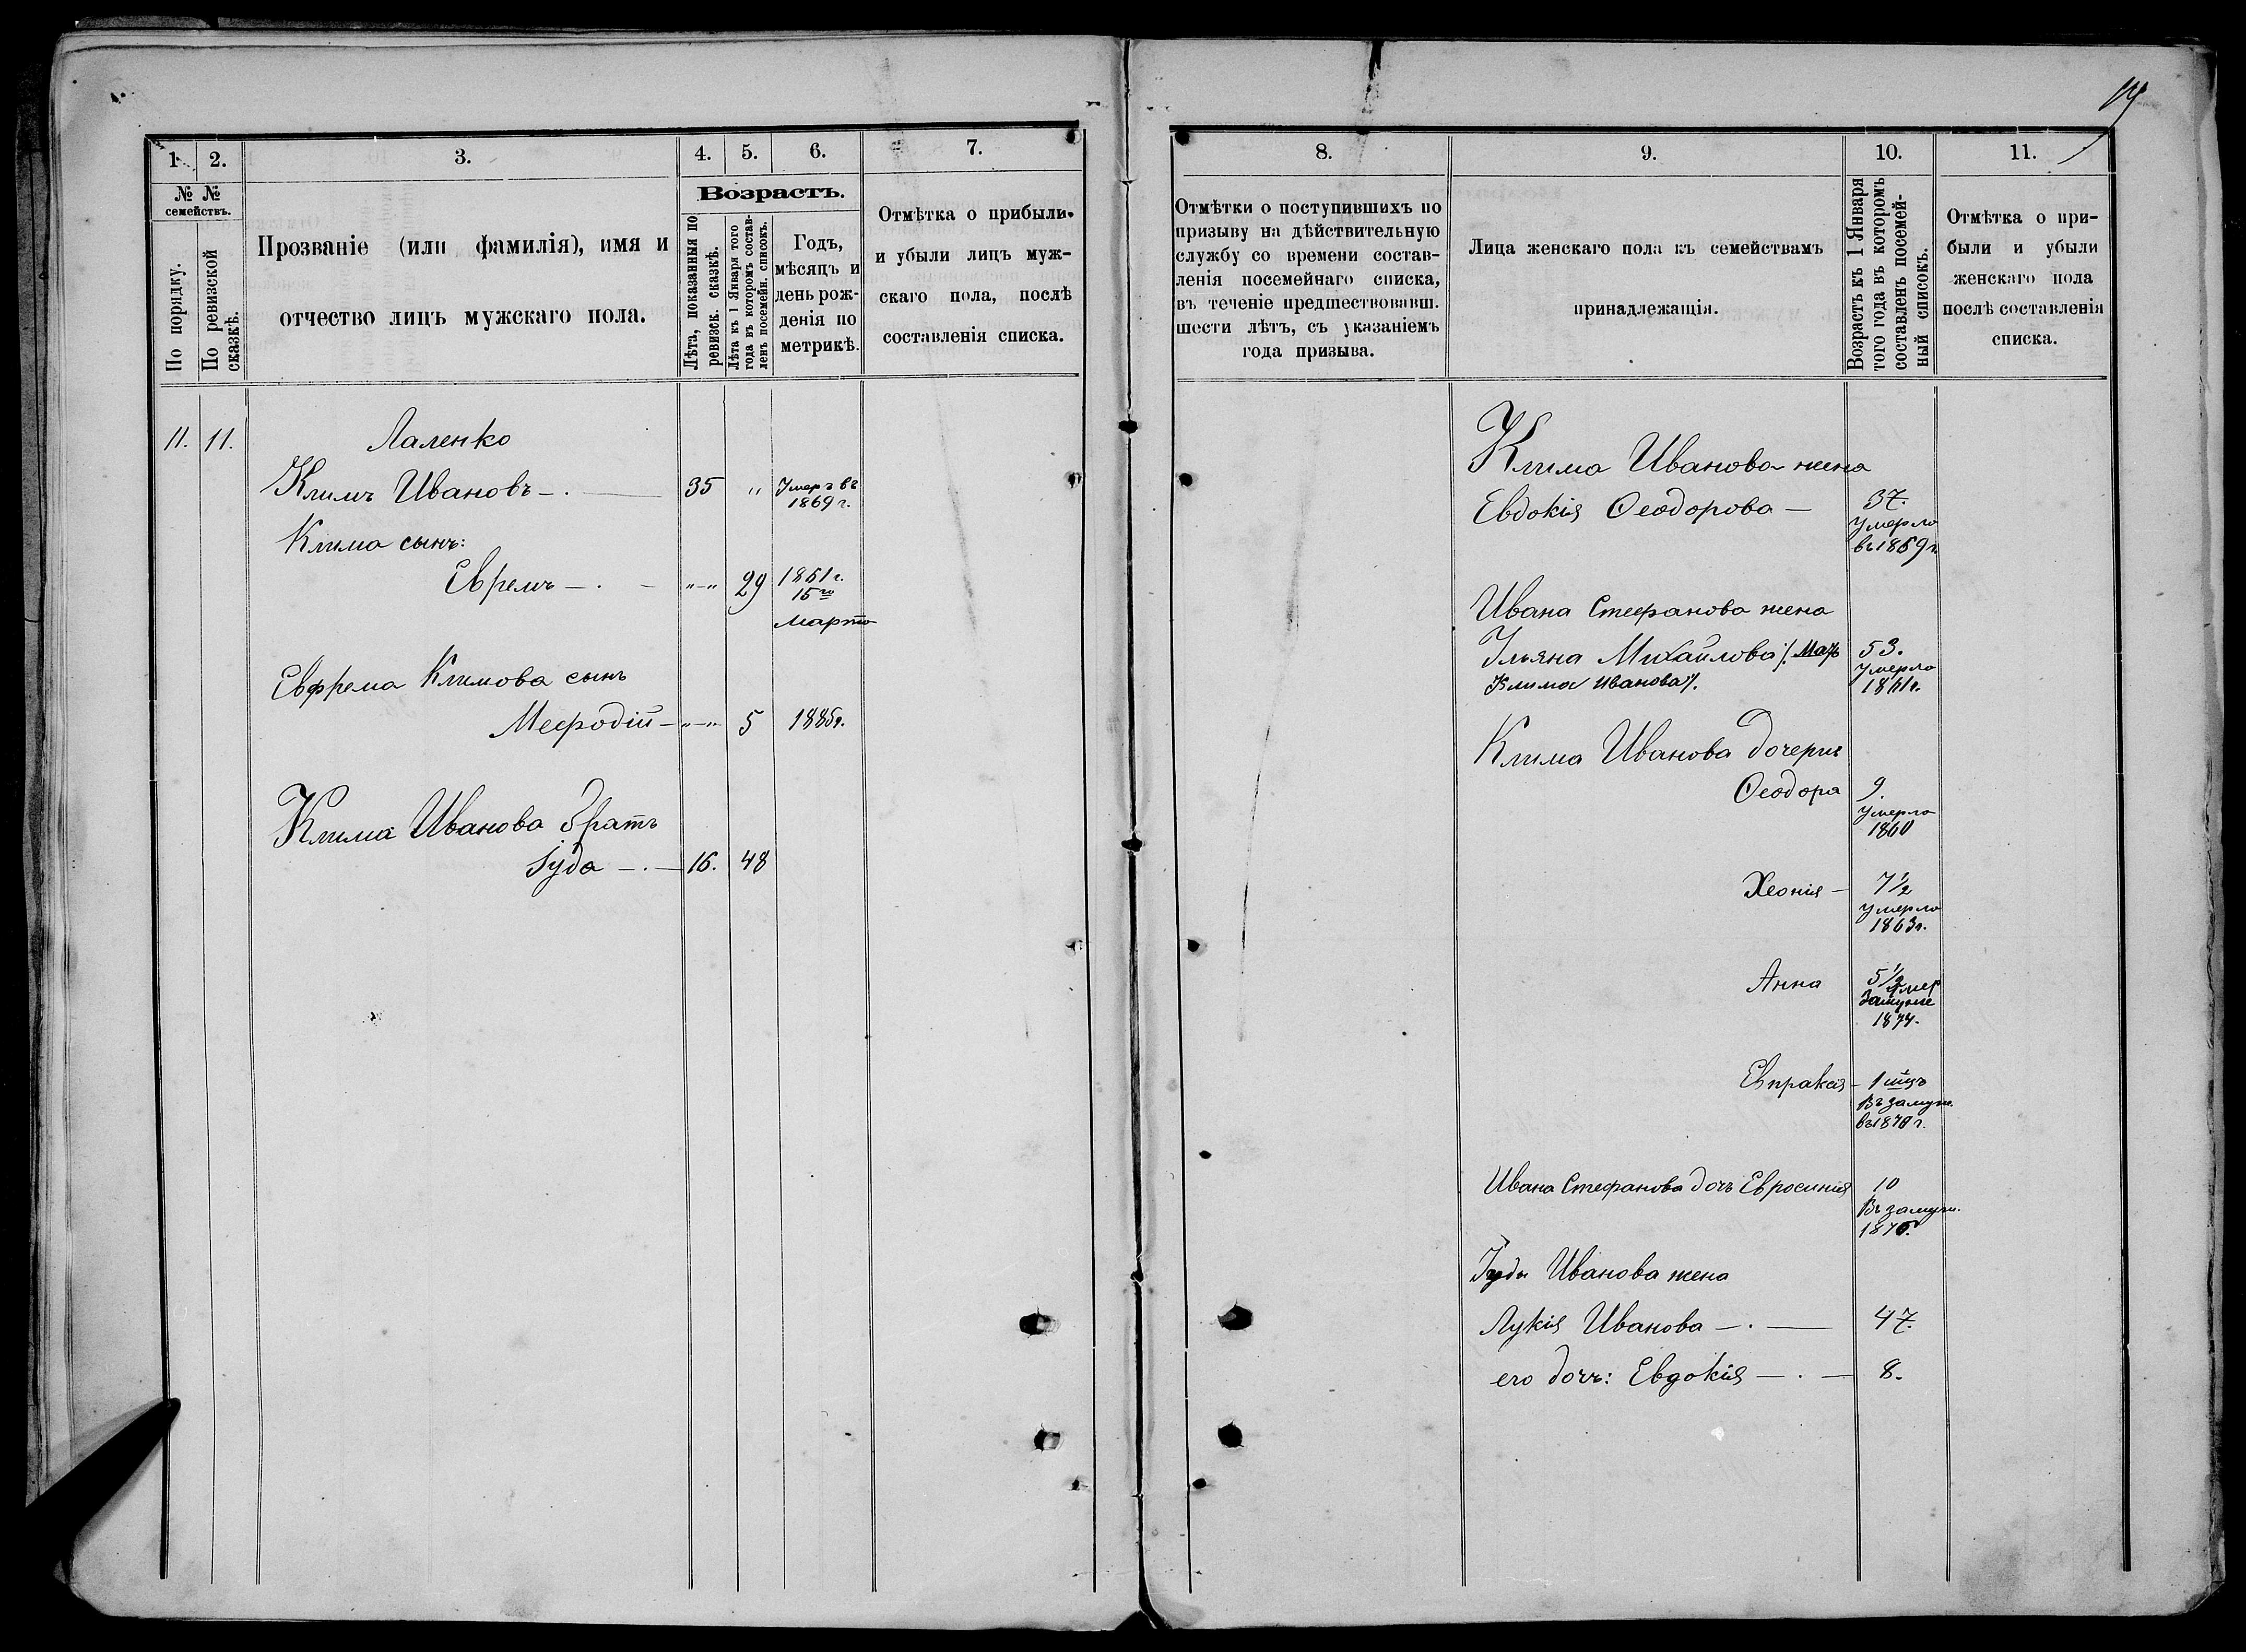 14
1. 2. 3. 4. 5. 6. 7.
№ № семействъ.
По порядку.
По ревизской сказкѣ.
Прозваніе (или фамилія), имя и
отчество лицъ мужскаго пола.
Возрастъ.
Лѣта, показанныя по
ревизск. сказкѣ.
Лѣта къ 1 Января того
года въ которомъ состав-
ленъ посемейн. списокъ.
Годъ,
мѣсяцъ и
день рож-
денія по
метрикѣ.
Отмѣтка о прибыли
и убыли лицъ муж-
скаго пола, послѣ
составленія списка.
11. 11. Лаленко
Климъ Ивановъ 35 " Умеръ въ
1869 г.
Клима сынъ:
Евремъ "-" 29 1861 г.
15го
Марта
Евфрема Климова сынъ
Меѳодій "-" 5 1885 г.
Клима Иванова братъ
Іуда 16. 48
8. 9. 10. 11.
Отмѣтки о поступившихъ по
призыву на дѣйствительную
службу со времени состав-
ленія посемейнаго списка,
въ теченіе предшествовавш.
шести лѣтъ, съ указаніемъ
года призыва.
Лица женскаго пола къ семействамъ
принадлежащія.
Возрастъ къ 1 Января
того года въ которомъ
составленъ посемей-
ный списокъ.
Отмѣтка о при-
были и убыли
женскаго пола
послѣ составленія
списка.
Клима Иванова жена
Евдокія Ѳеодорова — 37.
Умерла
въ 1869 г.
Ивана Стефанова жена
Ульяна Михайлова /. Мать 53.
Клима Иванова /. Умерла
1861 г.
Клима Иванова дочери
Ѳеодора 9.
Умерла
1860
Хеонія — 7 1/2
Умерла
1863 г.
Анна 5 1/2
Замуже
1874.
Евпраксія — 1
Въ замуж.
въ 1878 г.
Ивана Стефанова дочь Евросинія 10
Въ замуж.
1876.
Іуды Иванова жена
Лукія Иванова — 47.
его дочь: Евдокія — 8.